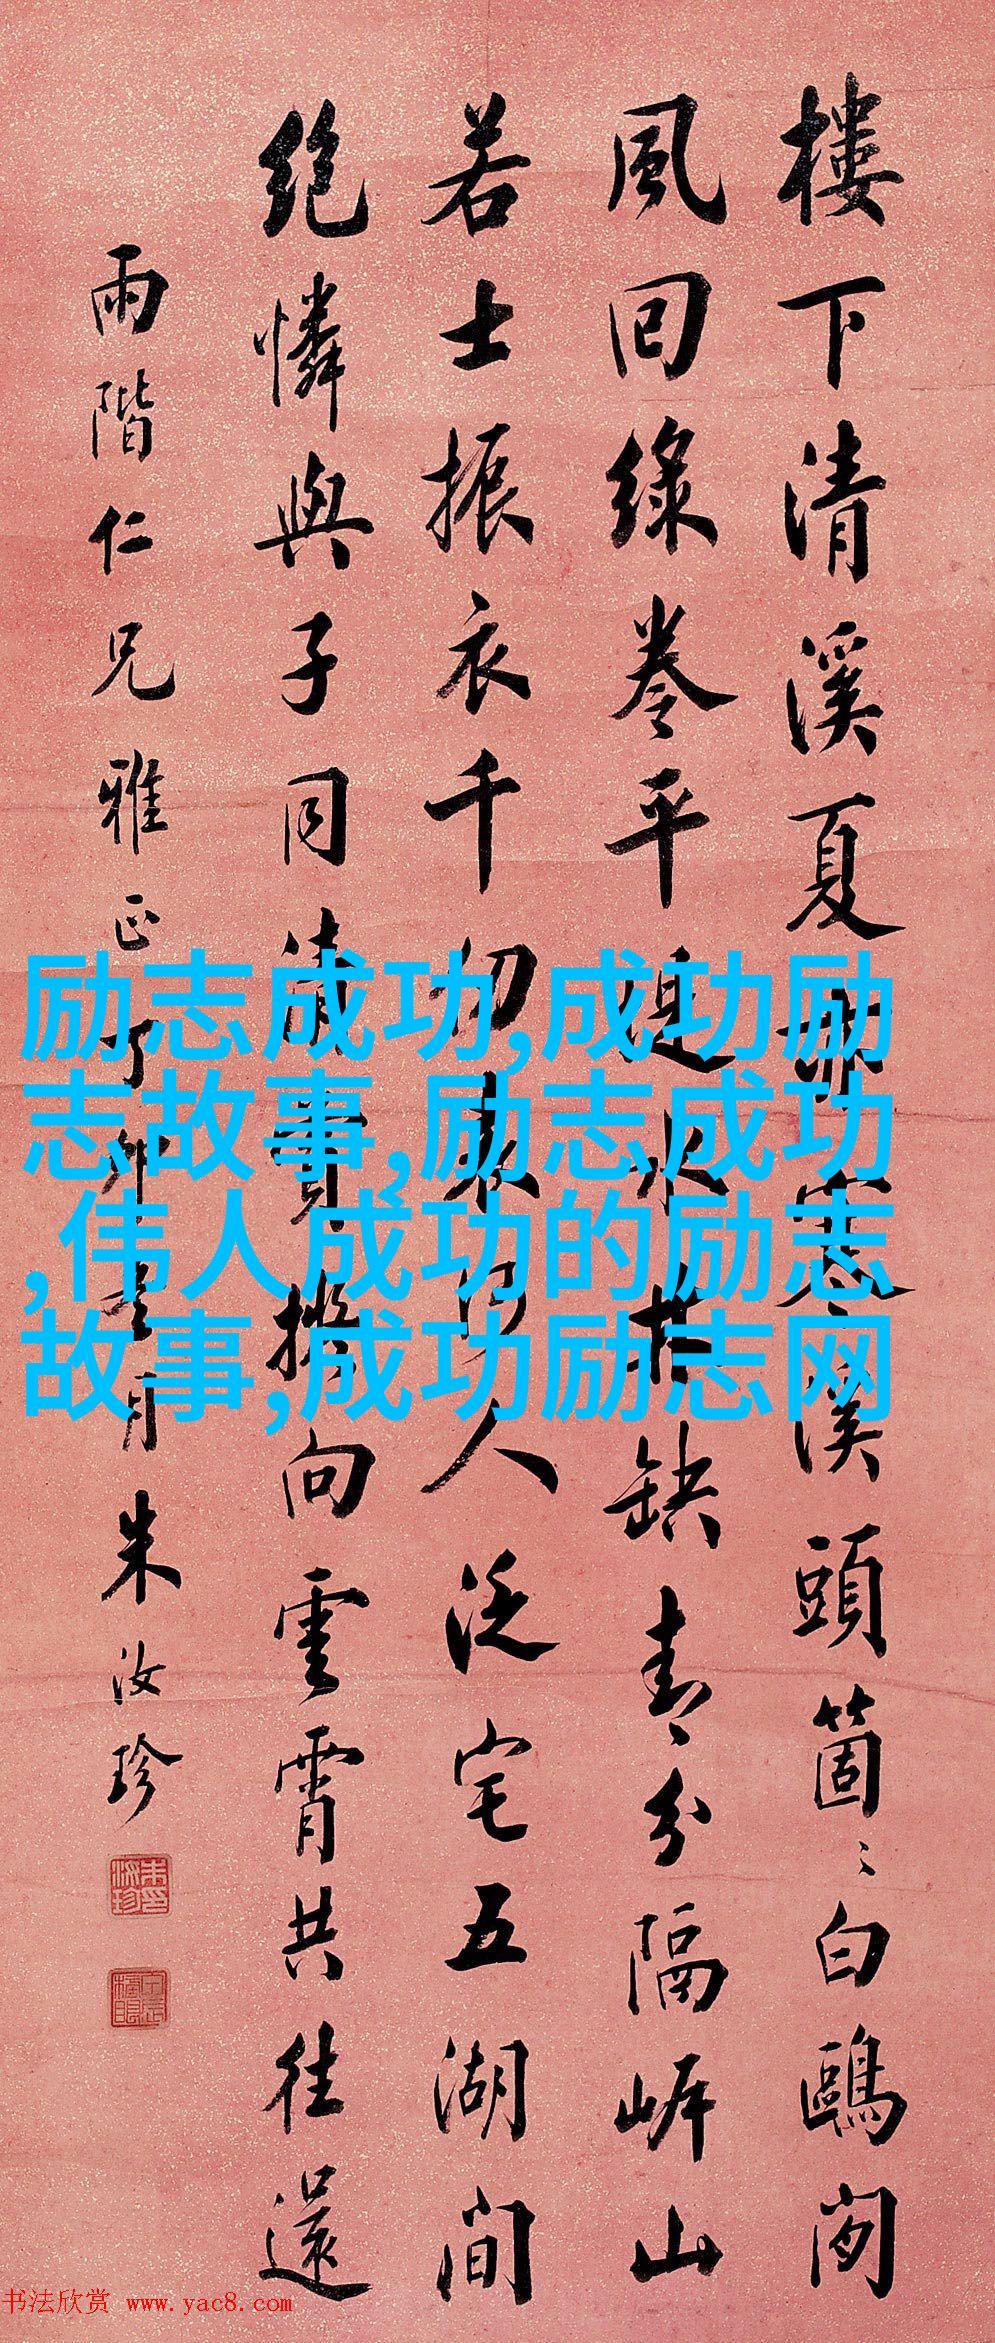 樓下清溪夏亦寒溪頭箇箇白鷗閒
風回綠卷平堤水樹缺青分隔岸山
若士振衣千仞表何人泛宅五湖間
絕憐與子同清賞擬向雲霄共往還
雨階仁兄雅正丁卯月朱汝珍
励志成功,成功励
志故事,励志成功
,伟人成功的励志
故事,成功励志网
书法欣赏 www.yac8.com